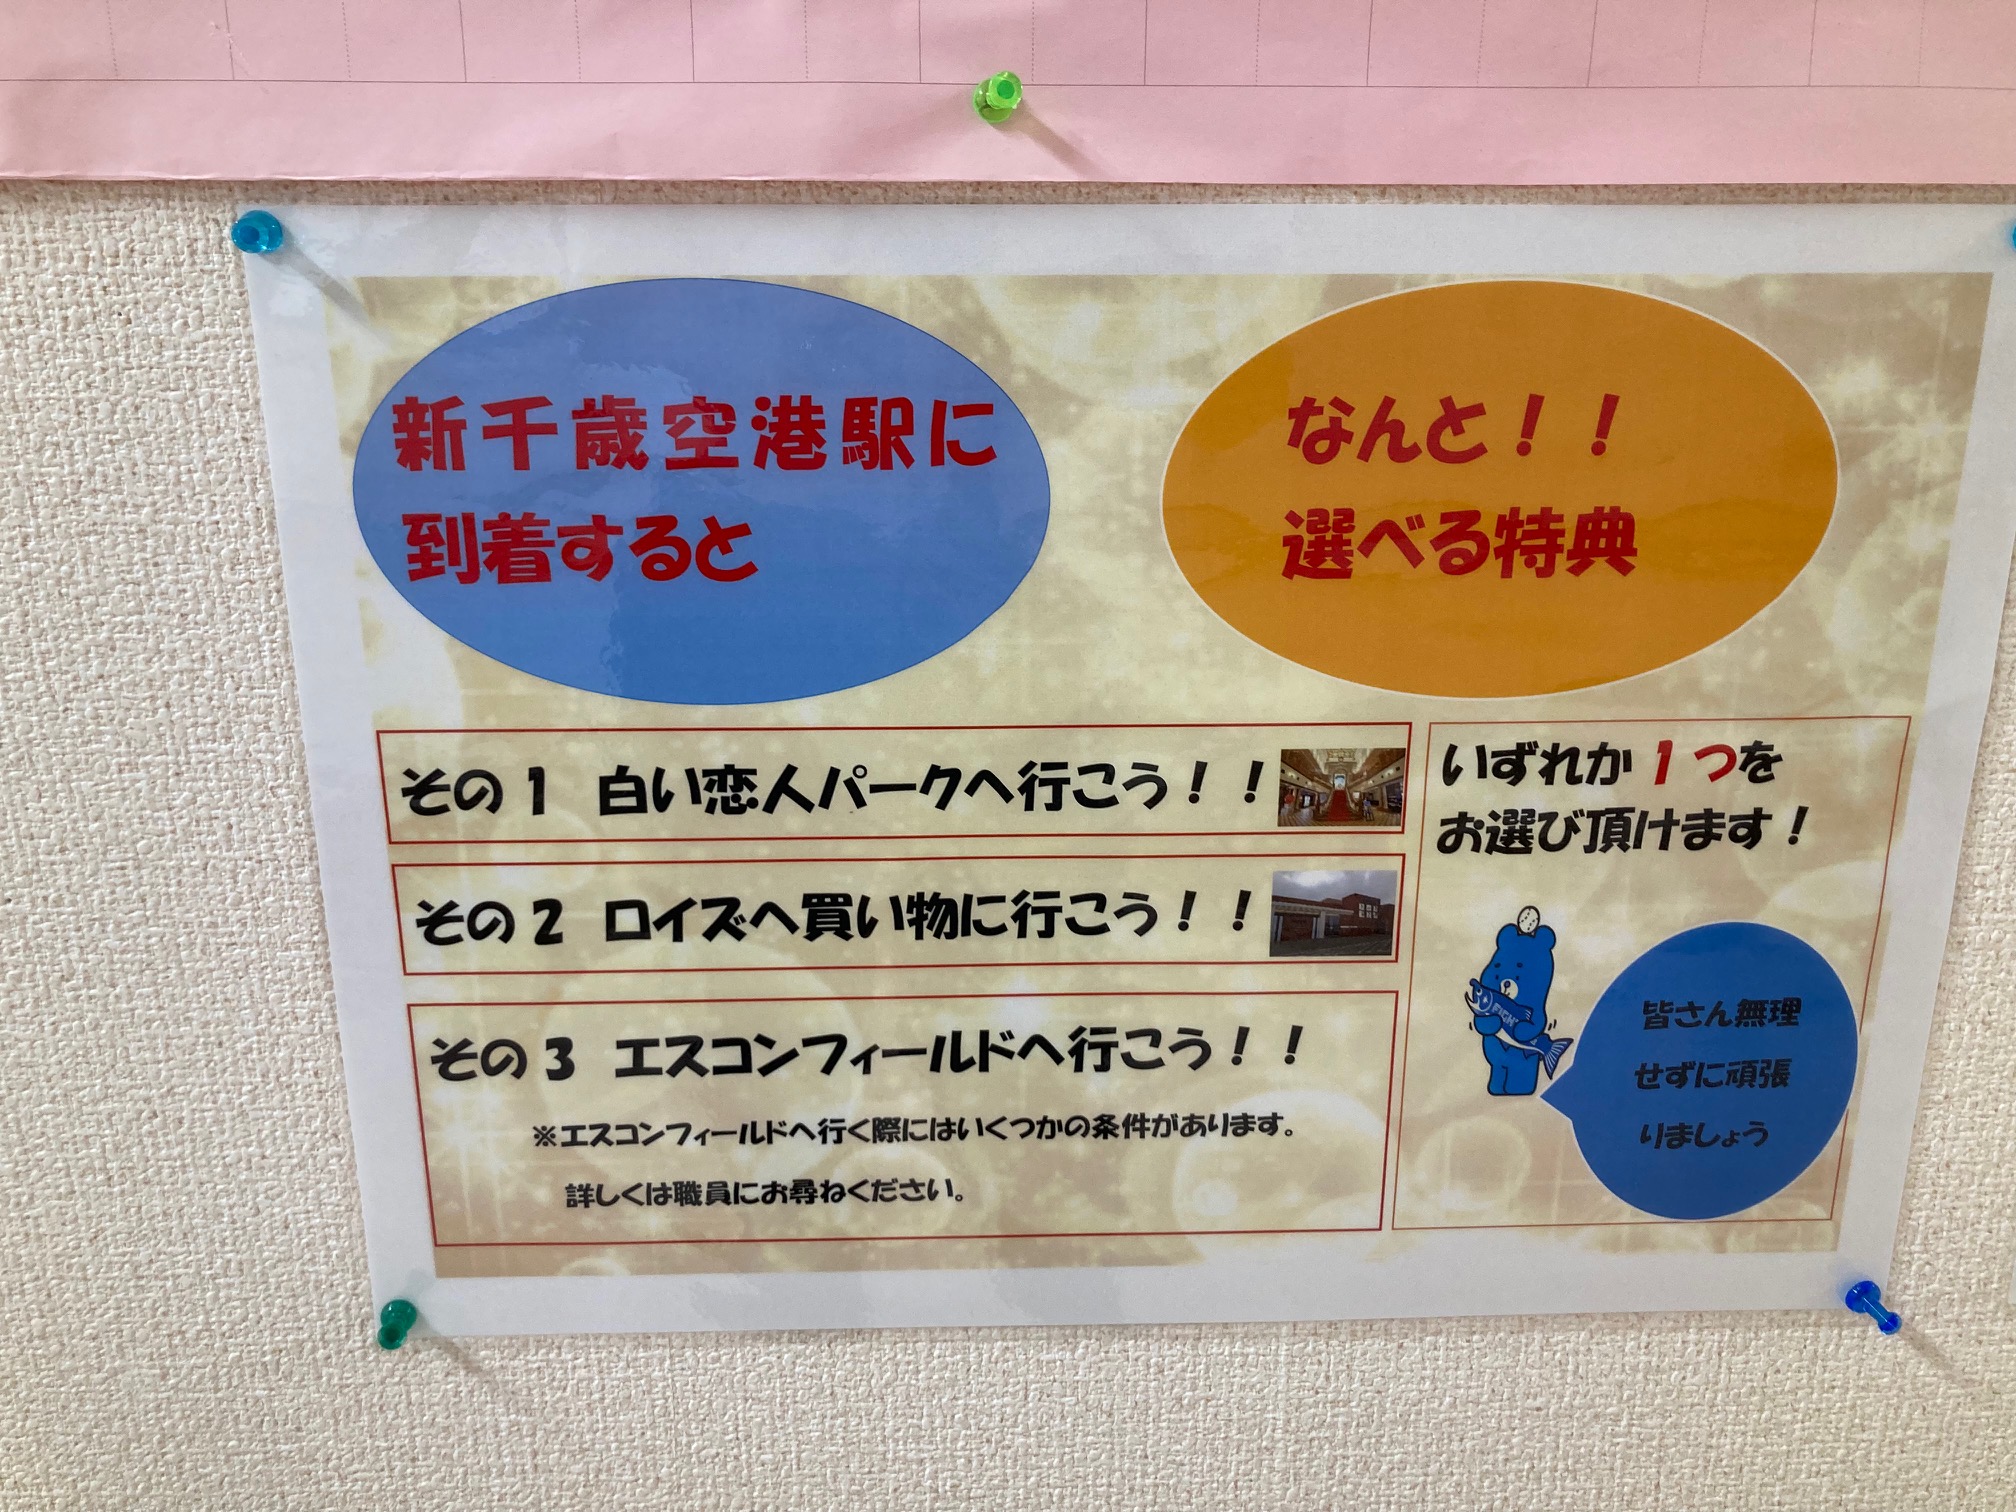 新千歳空港駅に
到着すると
なんと！！
選べる特典
その１　白い恋人パークへ行こう！！
その２　ロイズへ買い物に行こう！！
その３　エスコンフィールドへ行こう！！
※エスコンフィールドへ行く際にはいくつかの条件があります。
詳しくは職員にお尋ねください。
いずれか１つを
お選び頂けます！
皆さん無理
せずに頑張
りましょう